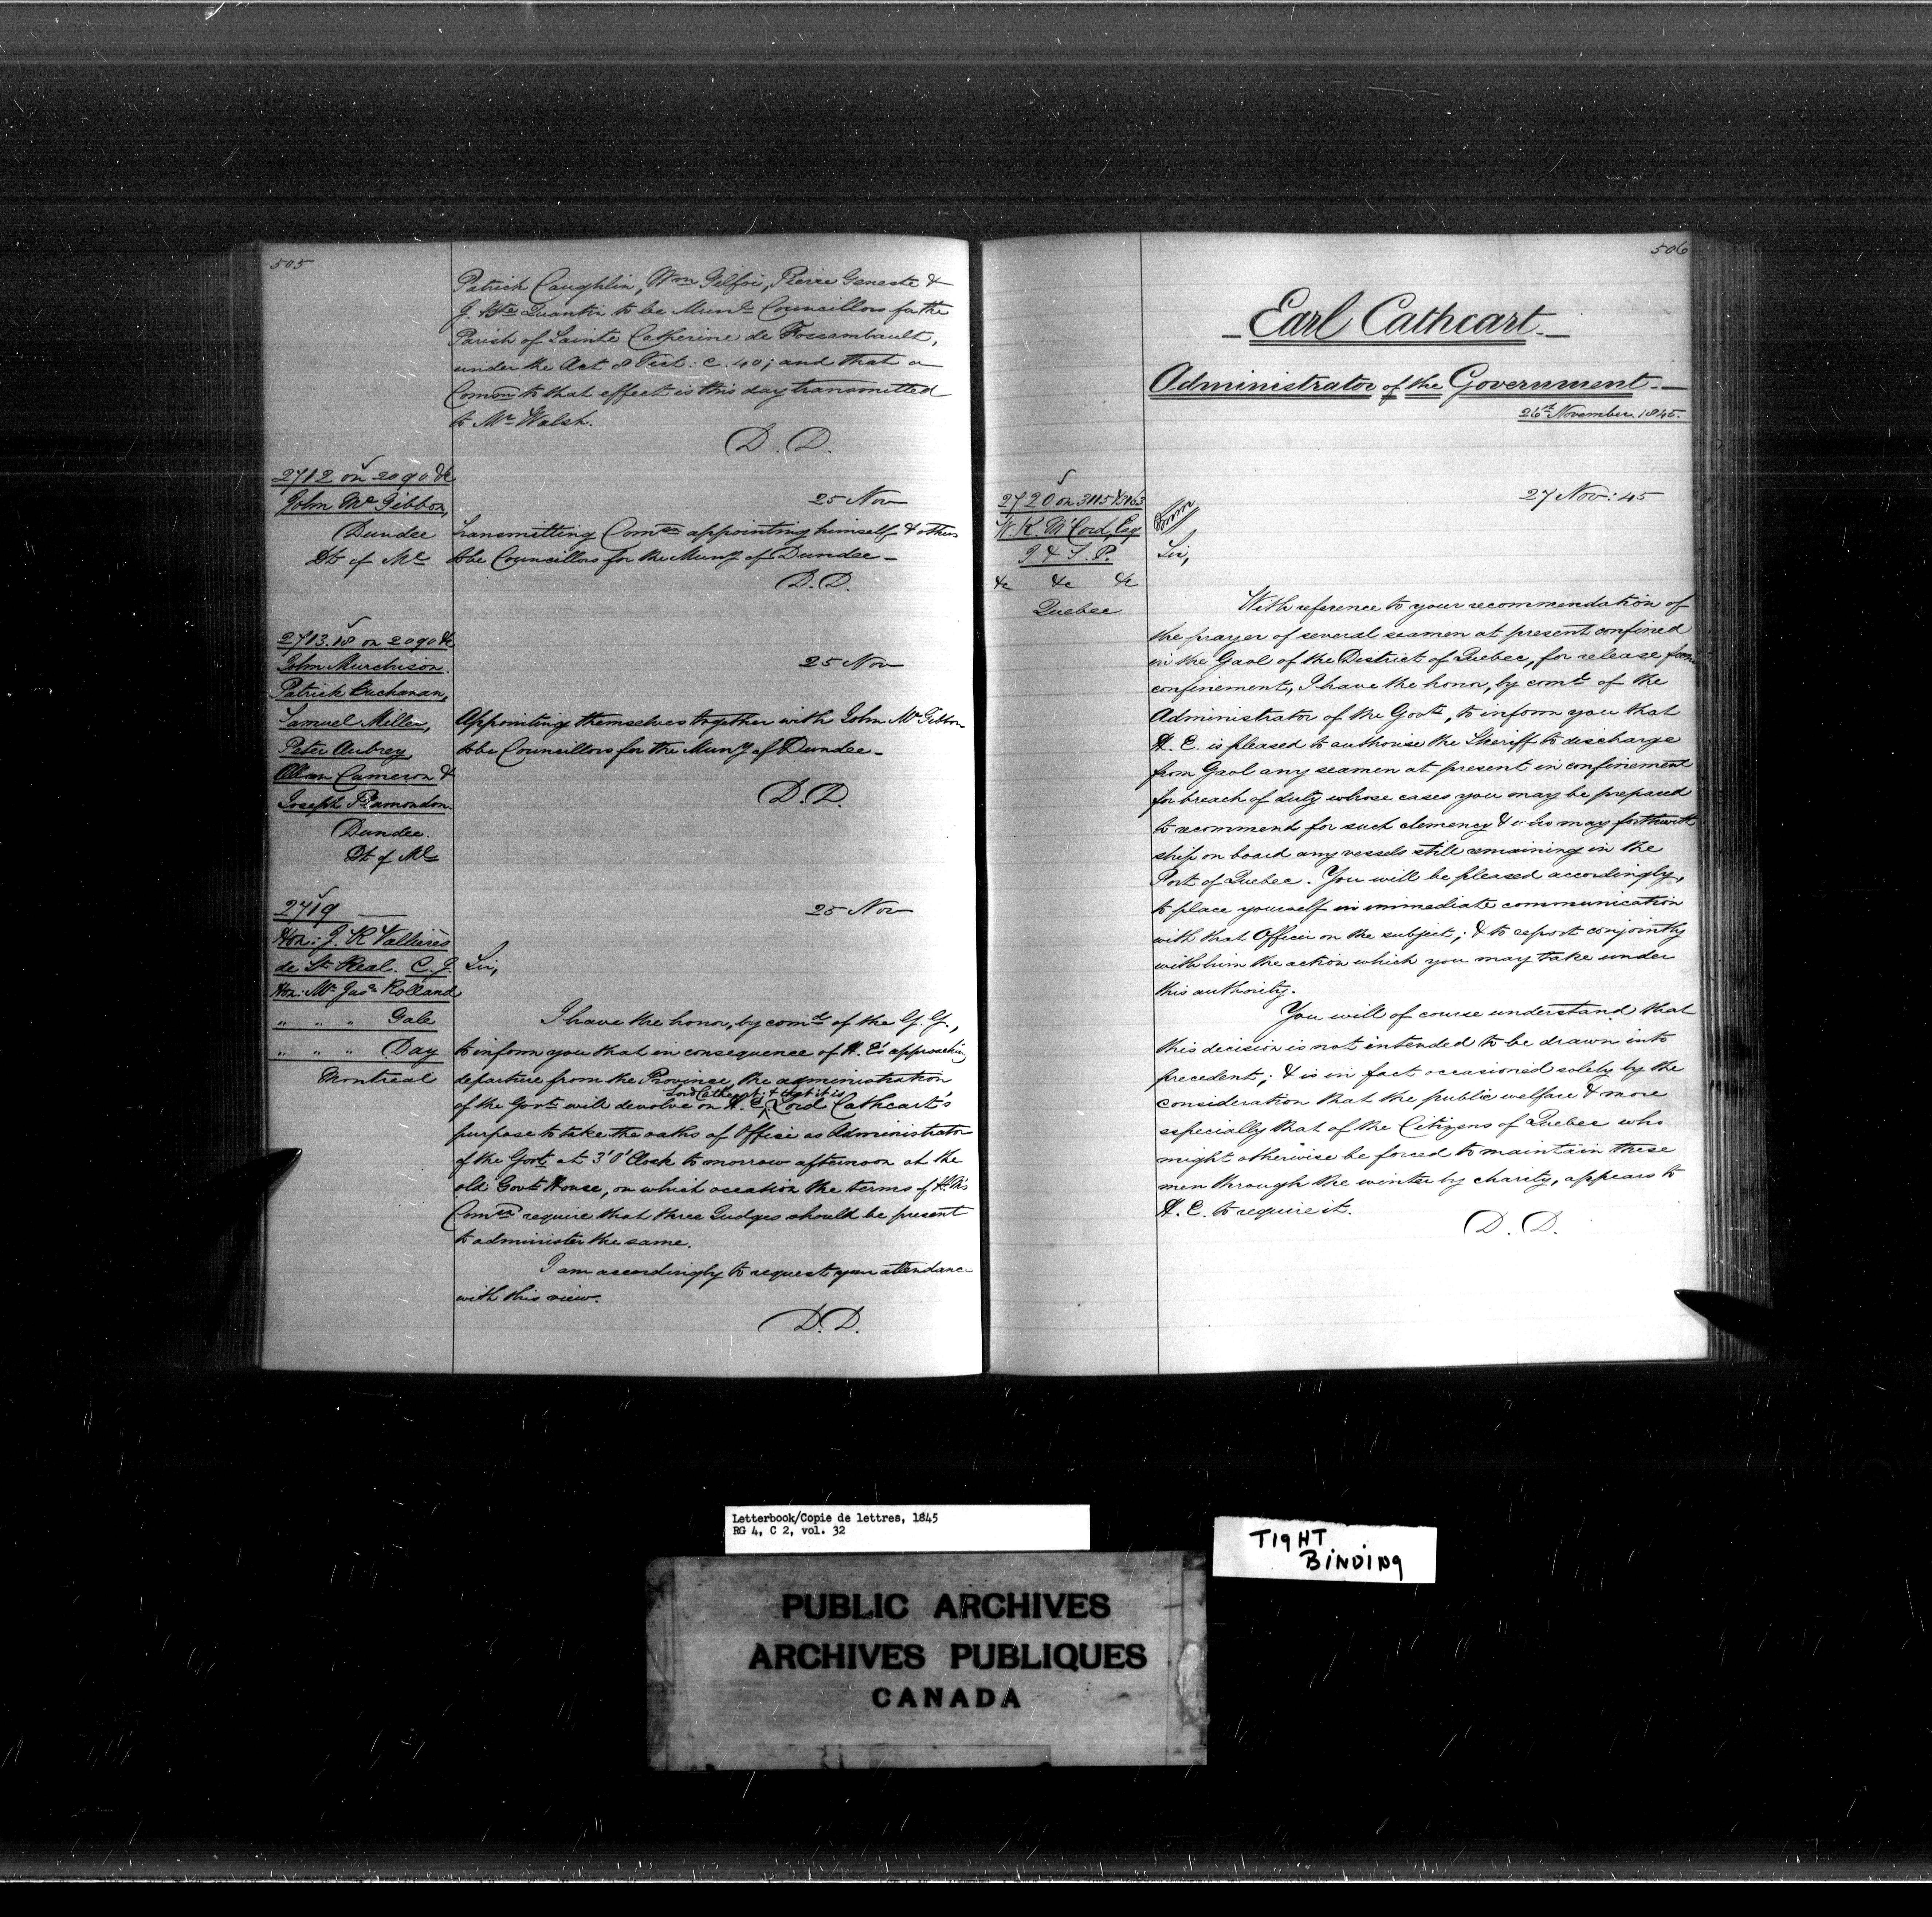 505
Patrick Caughlin, Wm Gilfoi, Pierre Geneste &
J. Bte Quantin to be Munl Councillors for the
Parish of Sainte Catherine de Fossambault,
under the Act 8 Vict: c. 40; and that a
Commn to that effect is this day transmitted
to Mr Walsh.
D. D.
2712 on 2090 &c
John McGibbon,
Dundee
Dt of Ml
25 Nov
Transmitting Comsn appointing himself & others
to be Councillors for the Muny of Dundee —
D. D.
2713.18 on 2090 &c
John Murchison.
Patrick Buchanan,
Samuel Miller,
Peter Aubrey
Allan Cameron &
Joseph Plamondon.
Dundee.
Dt of Ml
25 Nov
Appointing themselves together with John McGibbon
to be Councillors for the Muny of Dundee —
D. D.
2719 —
Hon: J. R Vallières
de St Real. C. J.
Hon: Mr Juse Rolland
" " " Gale
" " " Day
Montreal
25 Nov
Sir,
I have the honor, by comd of the G. G.,
to inform you that in consequence of H. E's approaching
departure from the Province, the administration
of the Govt will devolve on H. E. Lord Cathcart; & that it is Lord Cathcart's
purpose to take the oaths of Office as Administrator
of the Govt at 3 'O'Clock to morrow afternoon at the
old Govt House, on which occasion the terms of H. M's
Comsn require that three Judges should be present
to administer the same.
I am accordingly to request your attendance
with this view.
D. D.
506
— Earl Cathcart. —
Administrator of the Government. —
26th November. 1845.
2720 on 3115 & 3163
W. K. McCord, Esq
I & S. P.
&c &c &c
Quebec
27 Nov: 45
Sir,
With reference to your recommendation of
the prayer of several seamen at present confined
in the Gaol of the District of Quebec, for release from
confinement, I have the honor, by comd of the
Administrator of the Govt, to inform you that
H. E. is pleased to authorise the Sheriff to discharge
from Gaol any seamen at present in confinement
for breach of duty whose cases you may be prepared
to recommend for such clemency & who may forthwith
ship on board any vessels still remaining in the
Port of Quebec. You will be pleased accordingly,
to place yourself in immediate communication
with that Officer on the subject; & to report conjointly
with him the action which you may take under
this authority.
You will of course understand that
this decision is not intended to be drawn into
precedent; & is in fact occasioned solely by the
consideration that the public welfare & more
especially that of the Citizens of Quebec who
might otherwise be forced to maintain these
men through the winter by charity, appears to
H. E. to require it.
D. D.
Letterbook/Copie de lettres, 1845
RG 4, C 2, vol. 32
TIGHT
BINDING
PUBLIC ARCHIVES
ARCHIVES PUBLIQUES
CANADA